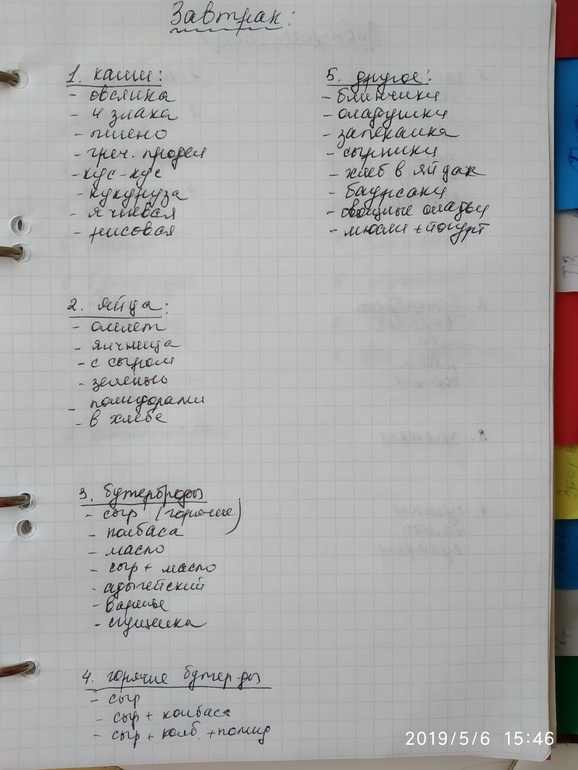 Завтрак:
1. каши:
- овсянка
- 4 злака
- пшено
- греч. продел
- кус-кус
- кукуруза
- ячневая
- рисовая
2. яйца:
- омлет
- яичница
- с сыром
- зеленью
- помидорами
- в хлебе
3. бутерброды
- сыр (горячие)
- колбаса
- масло
- сыр + масло
- адыгейский
- варенье
- сгущенка
4. горячие бутер-ды
- сыр
- сыр + колбаса
- сыр + колб. + помид
5. другое:
- блинчики
- оладушки
- запеканка
- сырники
- хлеб в яйцах
- баурсаки
- овощные оладьи
- мюсли + йогурт
2019/5/6 15:46